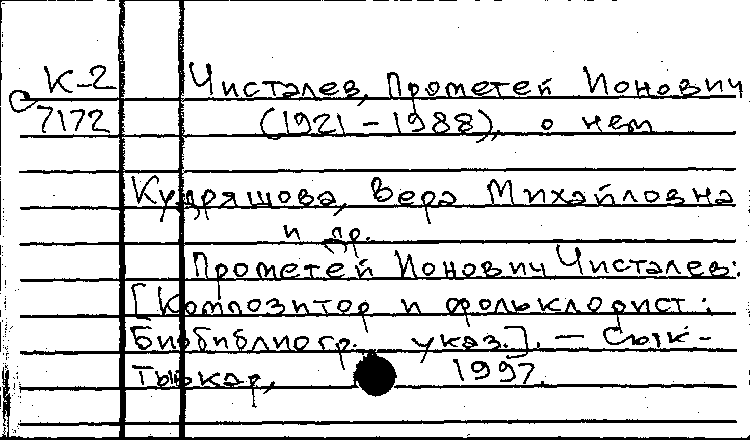 К-2 Чисталев, Прометей Ионович
7172 (1921 - 1988), о нем
Кудряшова, Вера Михайловна
и др.
Прометей Ионович Чисталев:
[Композитор и фольклорист:
Биобиблиогр. указ.]. — Сык-
тывкар, 1997.